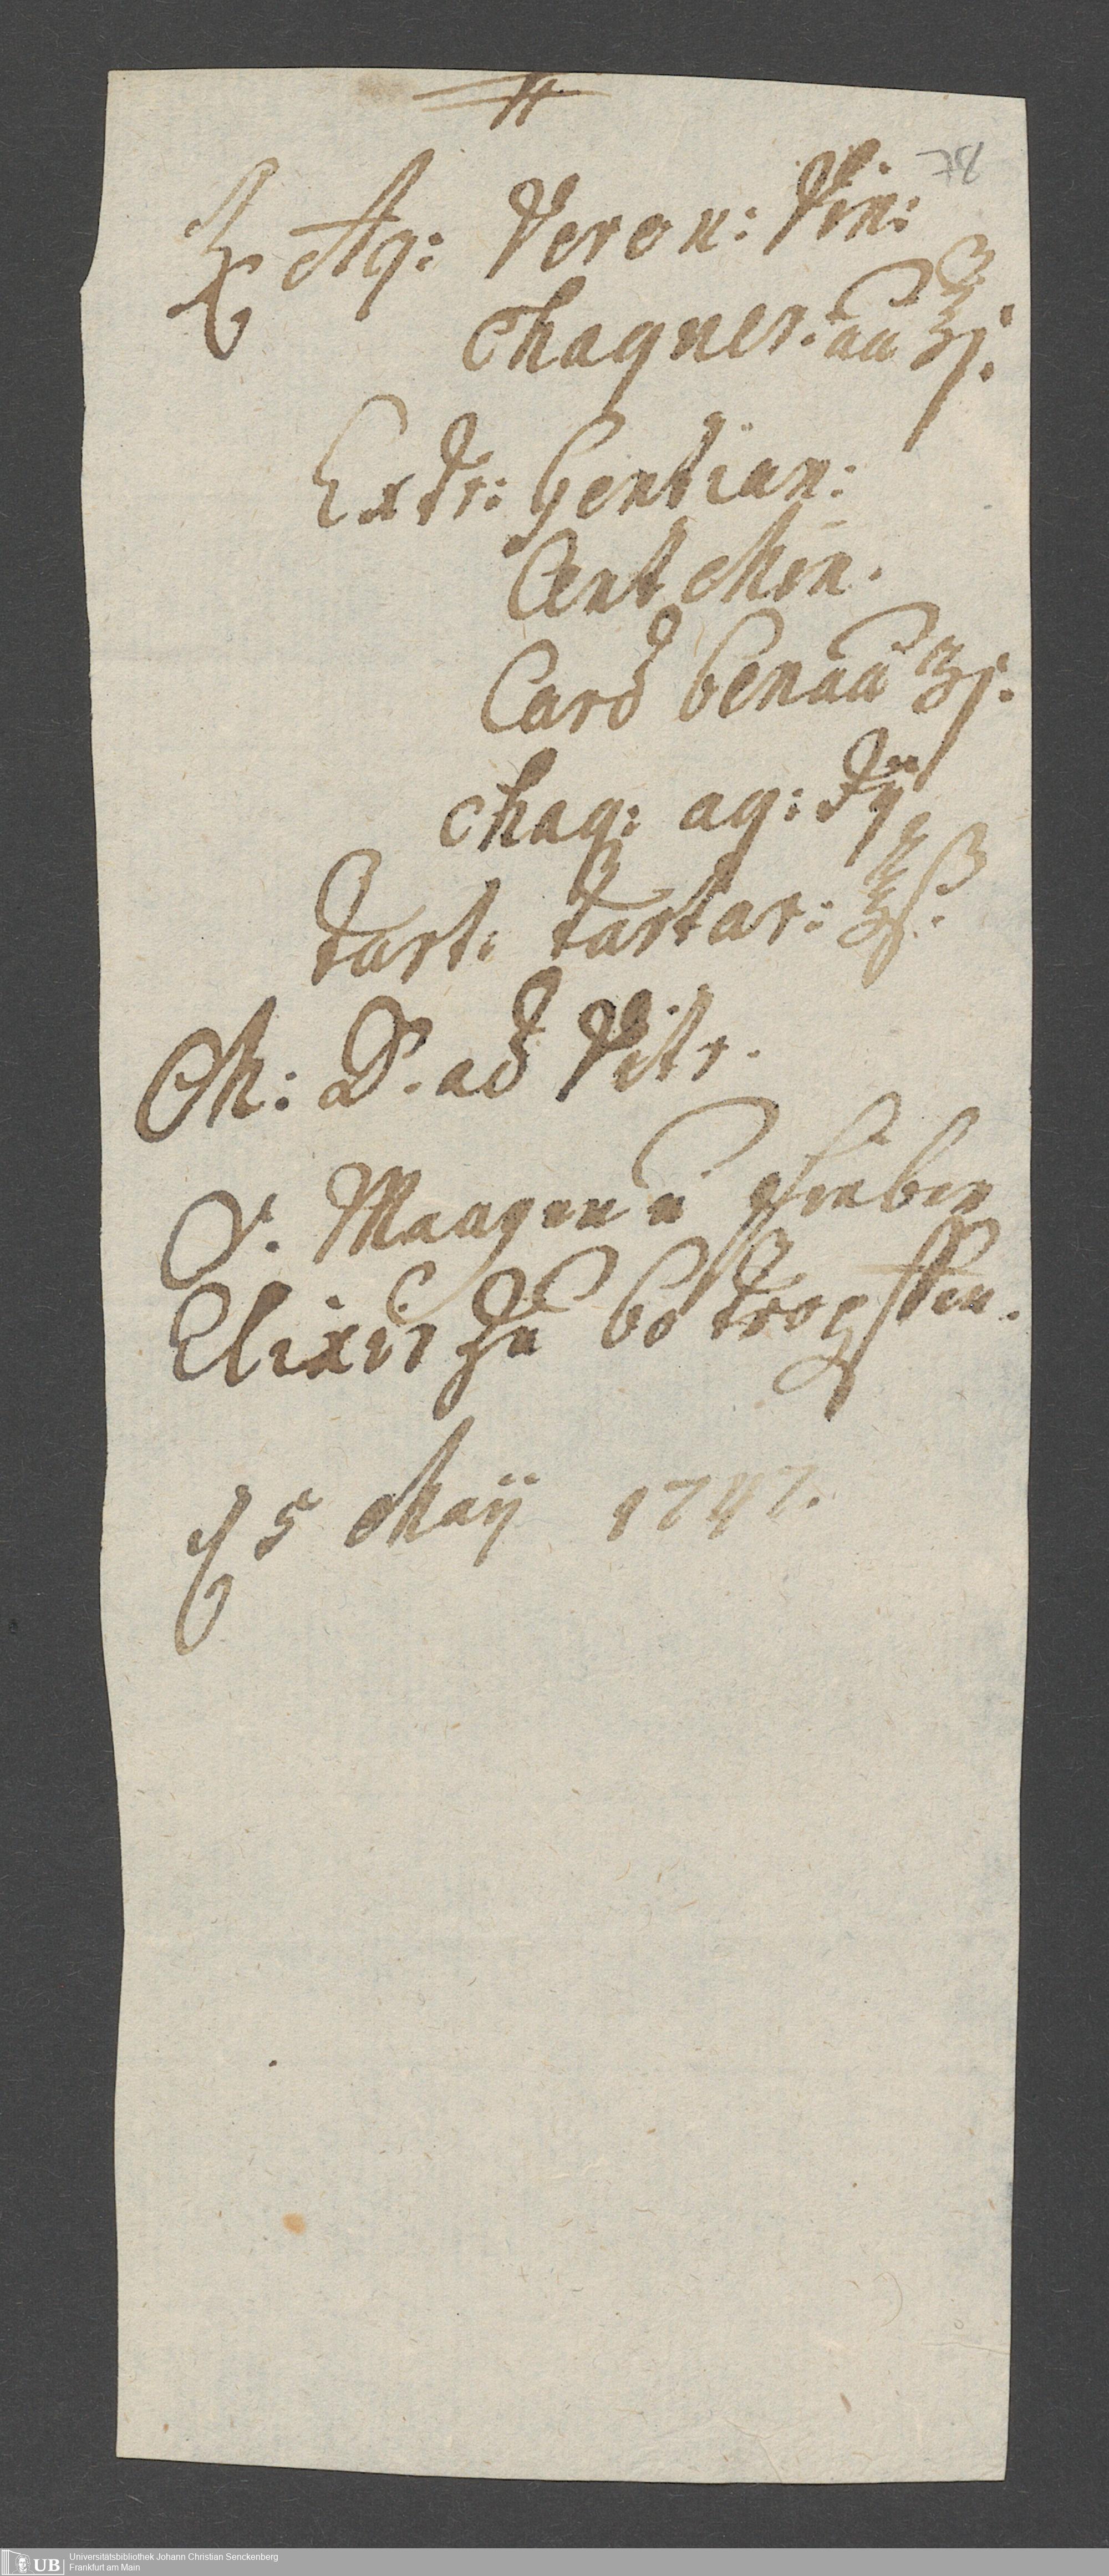 78
℞ Aq: Veron: Vin:
Magner. aā ℥j.
Extr: Gentian:
Cent Min.
Card ben aā ʒj.
Mag: aq: ʒij
tart: tartar: ℥ß.
M: D. ad Vitr.
S. Maagen u Fieber
Elixir zu 60 tropffen.
d 5 Maij 1747.
UB Universitätsbibliothek Johann Christian Senckenberg
Frankfurt am Main